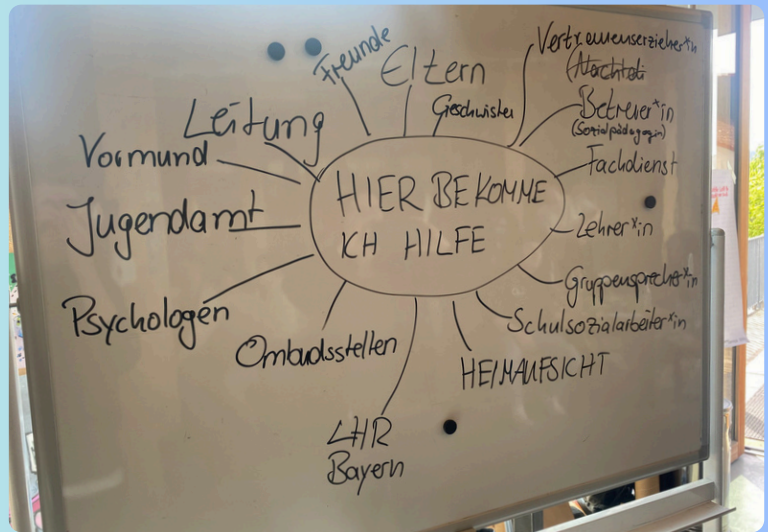 HIER BEKOMME
ICH HILFE
Freunde
Eltern
Geschwister
Vertrauenserzieher*in
Betreuer*in
(Sozialpädagogin)
Fachdienst
Lehrer*in
Gruppensprecher*in
Schulsozialarbeiter*in
HEIMAUFSICHT
LHR
Bayern
Ombudsstellen
Psychologen
Jugendamt
Vormund
Leitung